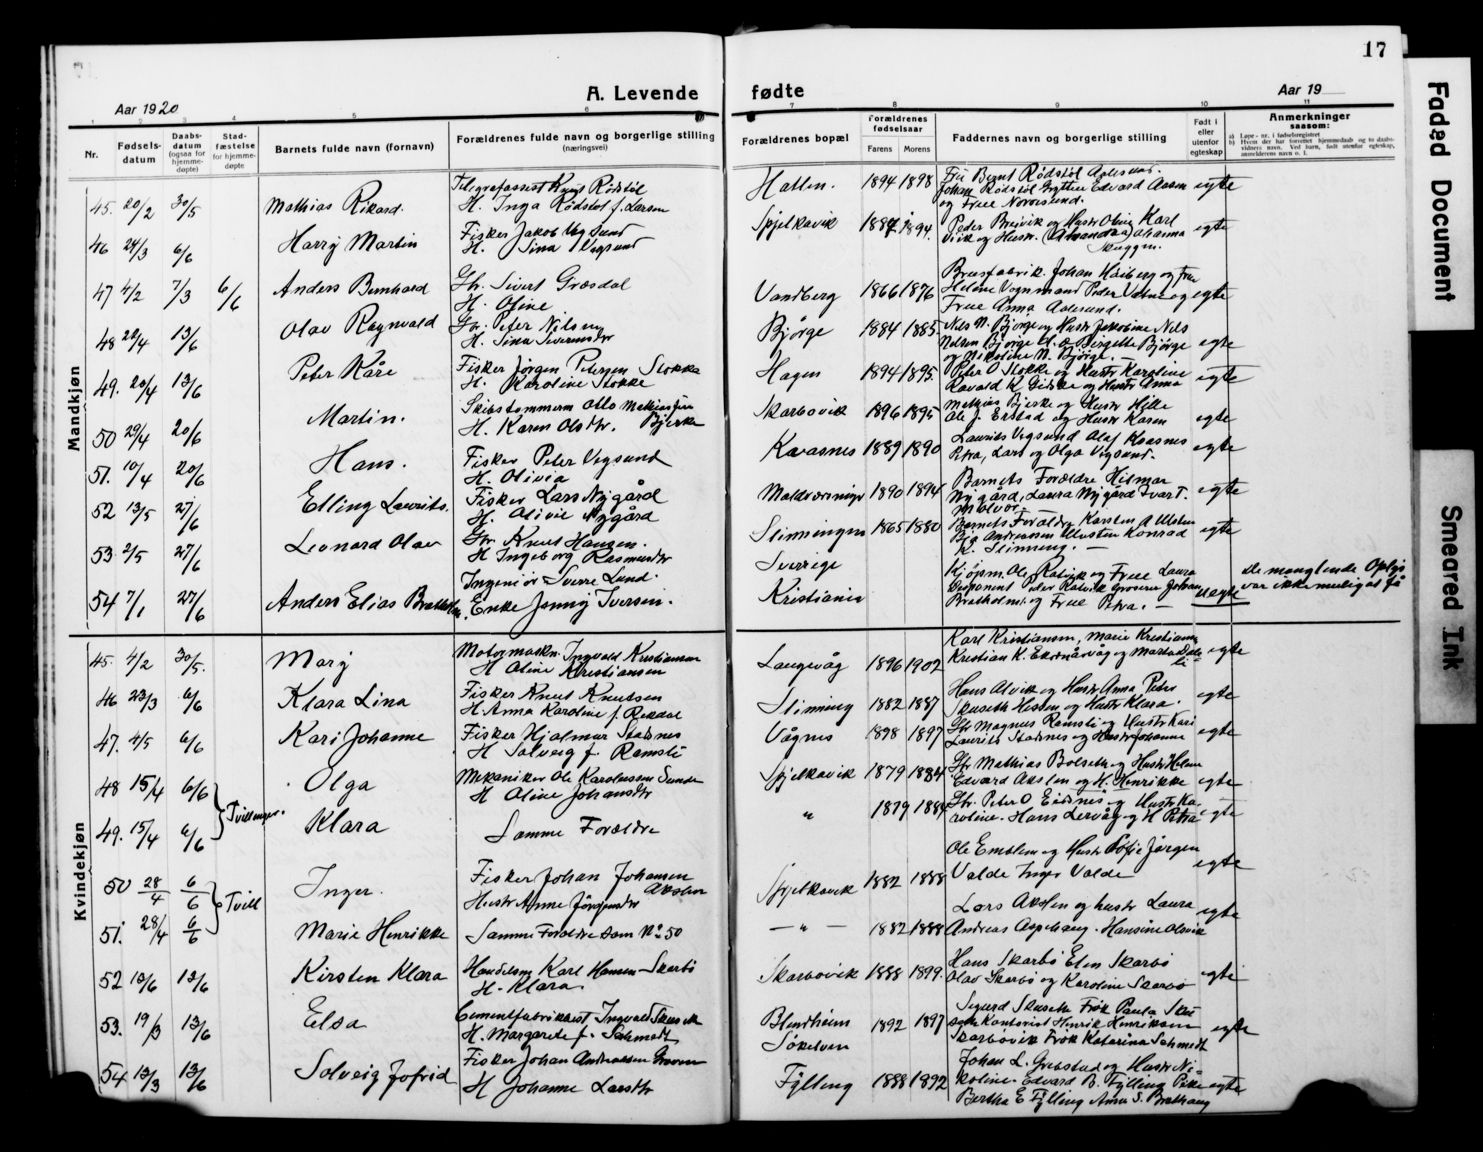 17
Aar 1920
A. Levende
fødte
Aar 19
1 2 3 4 5 6
7 8 9 10 11
Nr.
Fødsels-
datum
Daabs-
datum
(ogsaa for
hjemme-
døpte)
Stad-
fæstelse
for hjemme-
døpte
Barnets fulde navn (fornavn)
Forældrenes fulde navn og borgerlige stilling
(næringsvei)
Forældrenes bopæl
Forældrenes
fødselsaar
Farens Morens
Faddernes navn og borgerlige stilling
Født i
eller
utenfor
egteskap
Anmerkninger
saasom:
Mandkjøn
45. 20/2 30/5 Mathias Rikard. Telegrafassist Knut Rødstøl
H. Inga Rødstøl f. Larsen
Hatlen. 1894 1898
Johan Rødstøl Edvard Aasen
og Frue
egte
46 24/3 6/6 Harry Martin Fisker Jakob Vegsund
H. Sina Vegsund
Spjelkavik 1887 1894.
Peder Breivik og Hustr Oline Karl
Vik og Hustr. (Amanda)
egte
47 4/2 7/3 6/6 Anders Bernhard Gbr. Sivert Græsdal
H. Oline
Vandberg 1866 1876
Brusfabrik. Johan og Frue
Helene Vognmand Peder og
Frue Anna Aalesund.
egte
48 22/4 13/6 Olav Ragnvald Gbr. Peter Nilsen
H. Sina Iversensdtr
Bjørge 1884 1885.
Nils N. Bjørge og Hustr Jakobine Nils
Nelsen Bjørge H. o Bergitte Bjørge
og Nikoline N. Bjørge. —
egte
49. 20/4 13/6 Peter Kåre Fisker Jørgen Petersen Stokke
H. Karoline Stokke
Hagen 1894 1895.
Peter O Stokke og Hustr Karoline
Ravald K. Giske og Hustr Anna
egte
50 29/4 20/6 Martin. Skibstømmerm Otto Mathiassen
H. Karen Olsdtr. Bjerke
Skarbøvik 1896 1895
Mathias Bjerke og Hustr Hilde
Ole J. Erstad og Hustr Karen
egte
51. 10/4 20/6 Hans. Fisker Peter Vegsund
H. Olivia
Kvasnes 1889 1890
Laurits Vegsund Olaf Kvasnes
Petra, Lars og Olga Vegsund.
egte
52 13/5 27/6 Elling Laurits. Fisker Lars Nygård
H. Olivie Nygård
1890 1894
Barnets Forældre Hilmar
Nygård, Laura Nygård Ivar T.
egte
53. 2/5 27/6 Leonard Olav Gbr Knut Hansen.
H Ingeborg Rasmusdtr
Slinningen 1865 1880
Barnets Forældre Karsten A Ulsten
Andreassen Ulvsten Konrad
K. Slinning. —
egte
54 7/1 27/6 Anders Elias Bratholm Ingeniør Sverre Lund.
Enke Jenny Iversen.
Sverrige
Kristiania
Kjøpm. Ole Ratvik og Frue Laura
Disponent Peder Ratvik Grosserer Johan
Bratholm. og Frue Petra. —
uegte
de manglende Oplys
var ikke muligat få
Kvindekjøn
45. 4/2 30/5. Mary Motormaskn. Ingvald Kristiansen
H Oline Kristiansen
Langevåg 1896 1902
Karl Kristiansen, Marie Kristiansen
Kristian K. og Marta
egte
46 23/3 6/6 Klara Lina Fisker Knut Knutsen
H. Anna Karoline f. Rekdal
Slinning 1882 1887
Hans Alvik og Hustr Anna Peter
Skuseth Hessen og Hustr Klara.
egte
47. 4/5 6/6 Kari Johanne Fisker Hjalmar Stadsnes
H Solveig f. Ramsli
Vågnes 1898 1897
Gbr Magnus Ramsli og Hustr Kari
Laurits Stadsnes og Hustr Johanne
egte
48 15/4 6/6 Tvillinger. Olga Mekaniker Ole Karolussen Sunde
H Oline Johansdtr
Spjelkavik 1879 1884
Gbr Mathias Bolseth og Hustr Helene
Edvard Akslen og H. Henrikke
egte
49. 15/4 6/6 Klara Samme Forældre
" 1879 1884
Gbr. Peter O Eidsnes og Hustr Ka-
roline. Hans Lervåg og H Petra
egte
50 28/4 6/6 Tvill Inger. Fisker Johan Johansen
Akslen
Hustr Anne Jørgensdtr
Spjelkavik 1882 1888
Ole Emblem og Hustr Sofie Jørgen
Valde Inger Valde
egte
51. 28/4 6/6 Marie Henrikke Samme Forældre som No 50
— " — 1882 1888
Lars Akslen og hustr Laura
Andreas Aspehaug. Hansine Olsvik
egte
52 13/6 13/6 Kirsten Klara Handelsm Karl Hansen Skarbø
H. Klara.
Skarbøvik 1888 1899.
Hans Skarbø Elen Skarbø
Olav Skarbø og Karoline Skarbø
egte
53. 19/3 13/6 Elsa Cementfabrikant Ingvald Skuseth
H. Margarete f. Schmidt
Blindheim
Søkelven
1892 1897
Sigurd Skuseth Frøk Paula Sku
seth Kontorist Henrik Henriksen
Skarbøvik Frøk Katarina Schmidt
egte
54 13/3 13/6 Solveig Jofrid Fisker Johan Andreassen
H Johanne Larsdtr
Fylling 1888 1892
Johan L. Grebstad og Hustr Ni-
koline. Edvard B. Fylling
Bertha E Fylling Anna S. Brathaug
egte
Faded Document
Smeared Ink